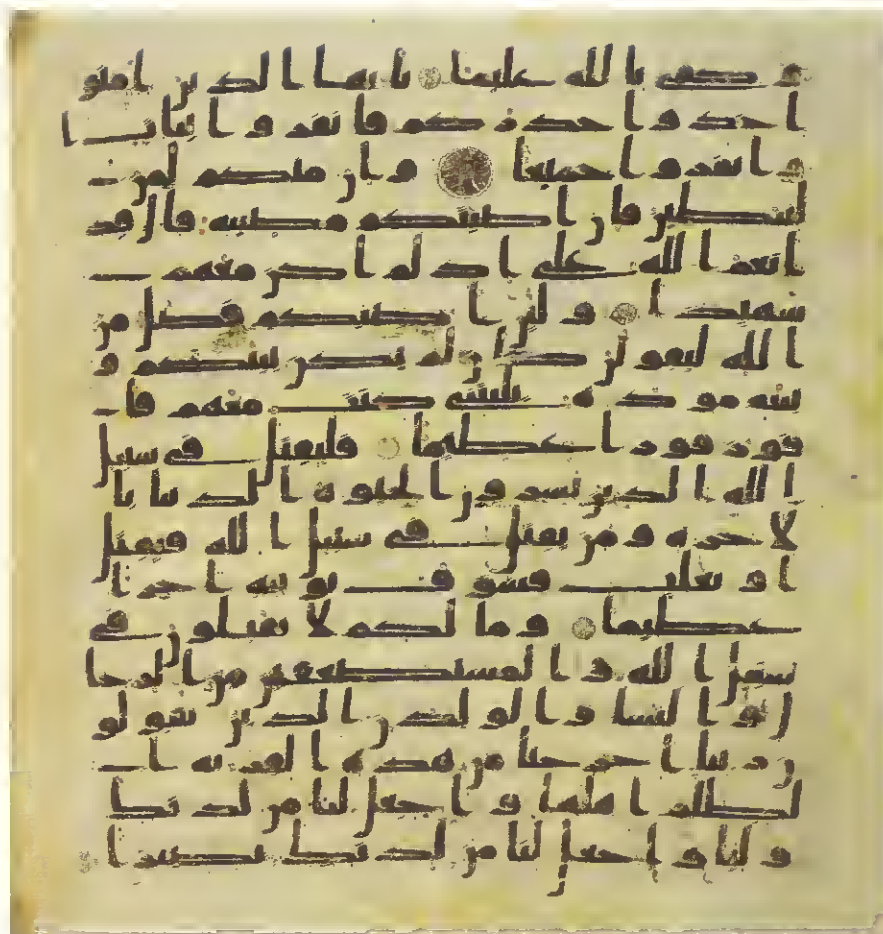 و كفى بالله عليما يايها الذين امنو
ا خذوا حذركم فانفروا ثبات ا
و انفروا جميعا وان منكم لمن
ليبطين فان اصبتكم مصيبه قال قد
انعم الله على اذ لم اكن معهم
شهيدا ولئن اصبكم فضل من
الله ليقولن كان لم تكن بينكم و
بينه موده يليتني كنت معهم فا
فوز فوزا عظيما فليقتل في سبيل
الله الذين يشرون الحيوة الدنيا با
لاخره ومن يقتل في سبيل الله فيقتل
او يغلب فسوف نوتيه اجرا
عظيما وما لكم لا تقتلون في
سبيل الله والمستضعفين من الرجا
ل والنسا والولدن الذين يقولو
ن ربنا اخرجنا من هذه القريه ا
لظالم اهلها واجعل لنا من لدنك
وليا واجعل لنا من لدنك نصيرا